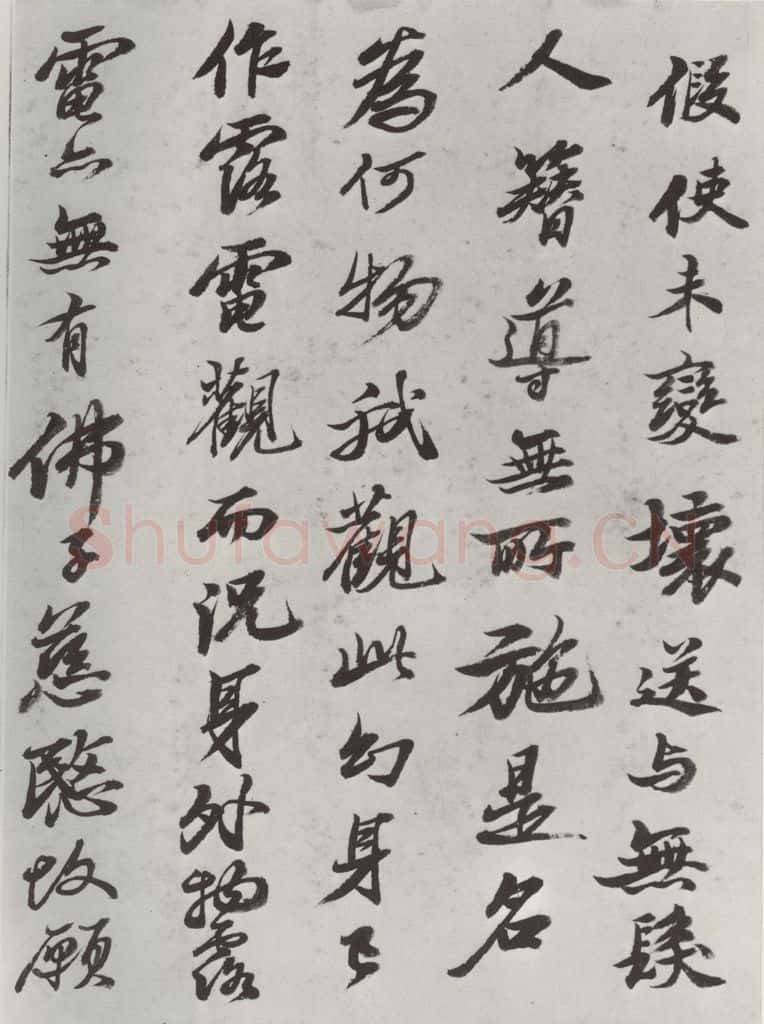 假使未變壞送与無髮
人簪導無所施是名
為何物我觀此幻身已
作露電觀而況身外物露
電亦無有佛子慈愍故願
Shufawang.CN